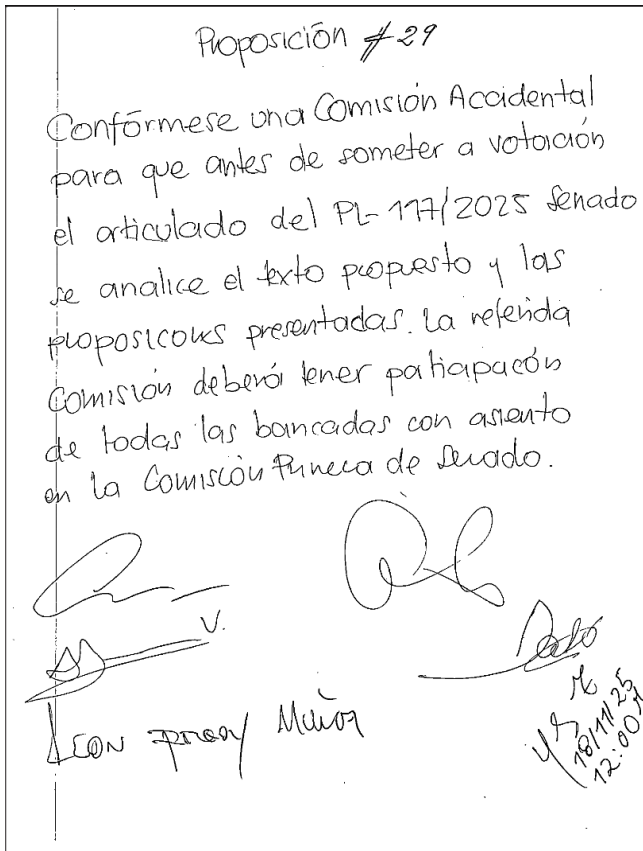 Proposición #29
Confórmese una Comisión Accidental
para que antes de someter a votación
el articulado del PL-117/2025 Senado
se analice el texto propuesto y las
proposicones presentadas. La referida
Comisión deberá tener paticipacón
de todas las bancadas con asiento
en la Comisión Primera de Senado.
V.
León Fredy Muñoz
18/11/25
12:00